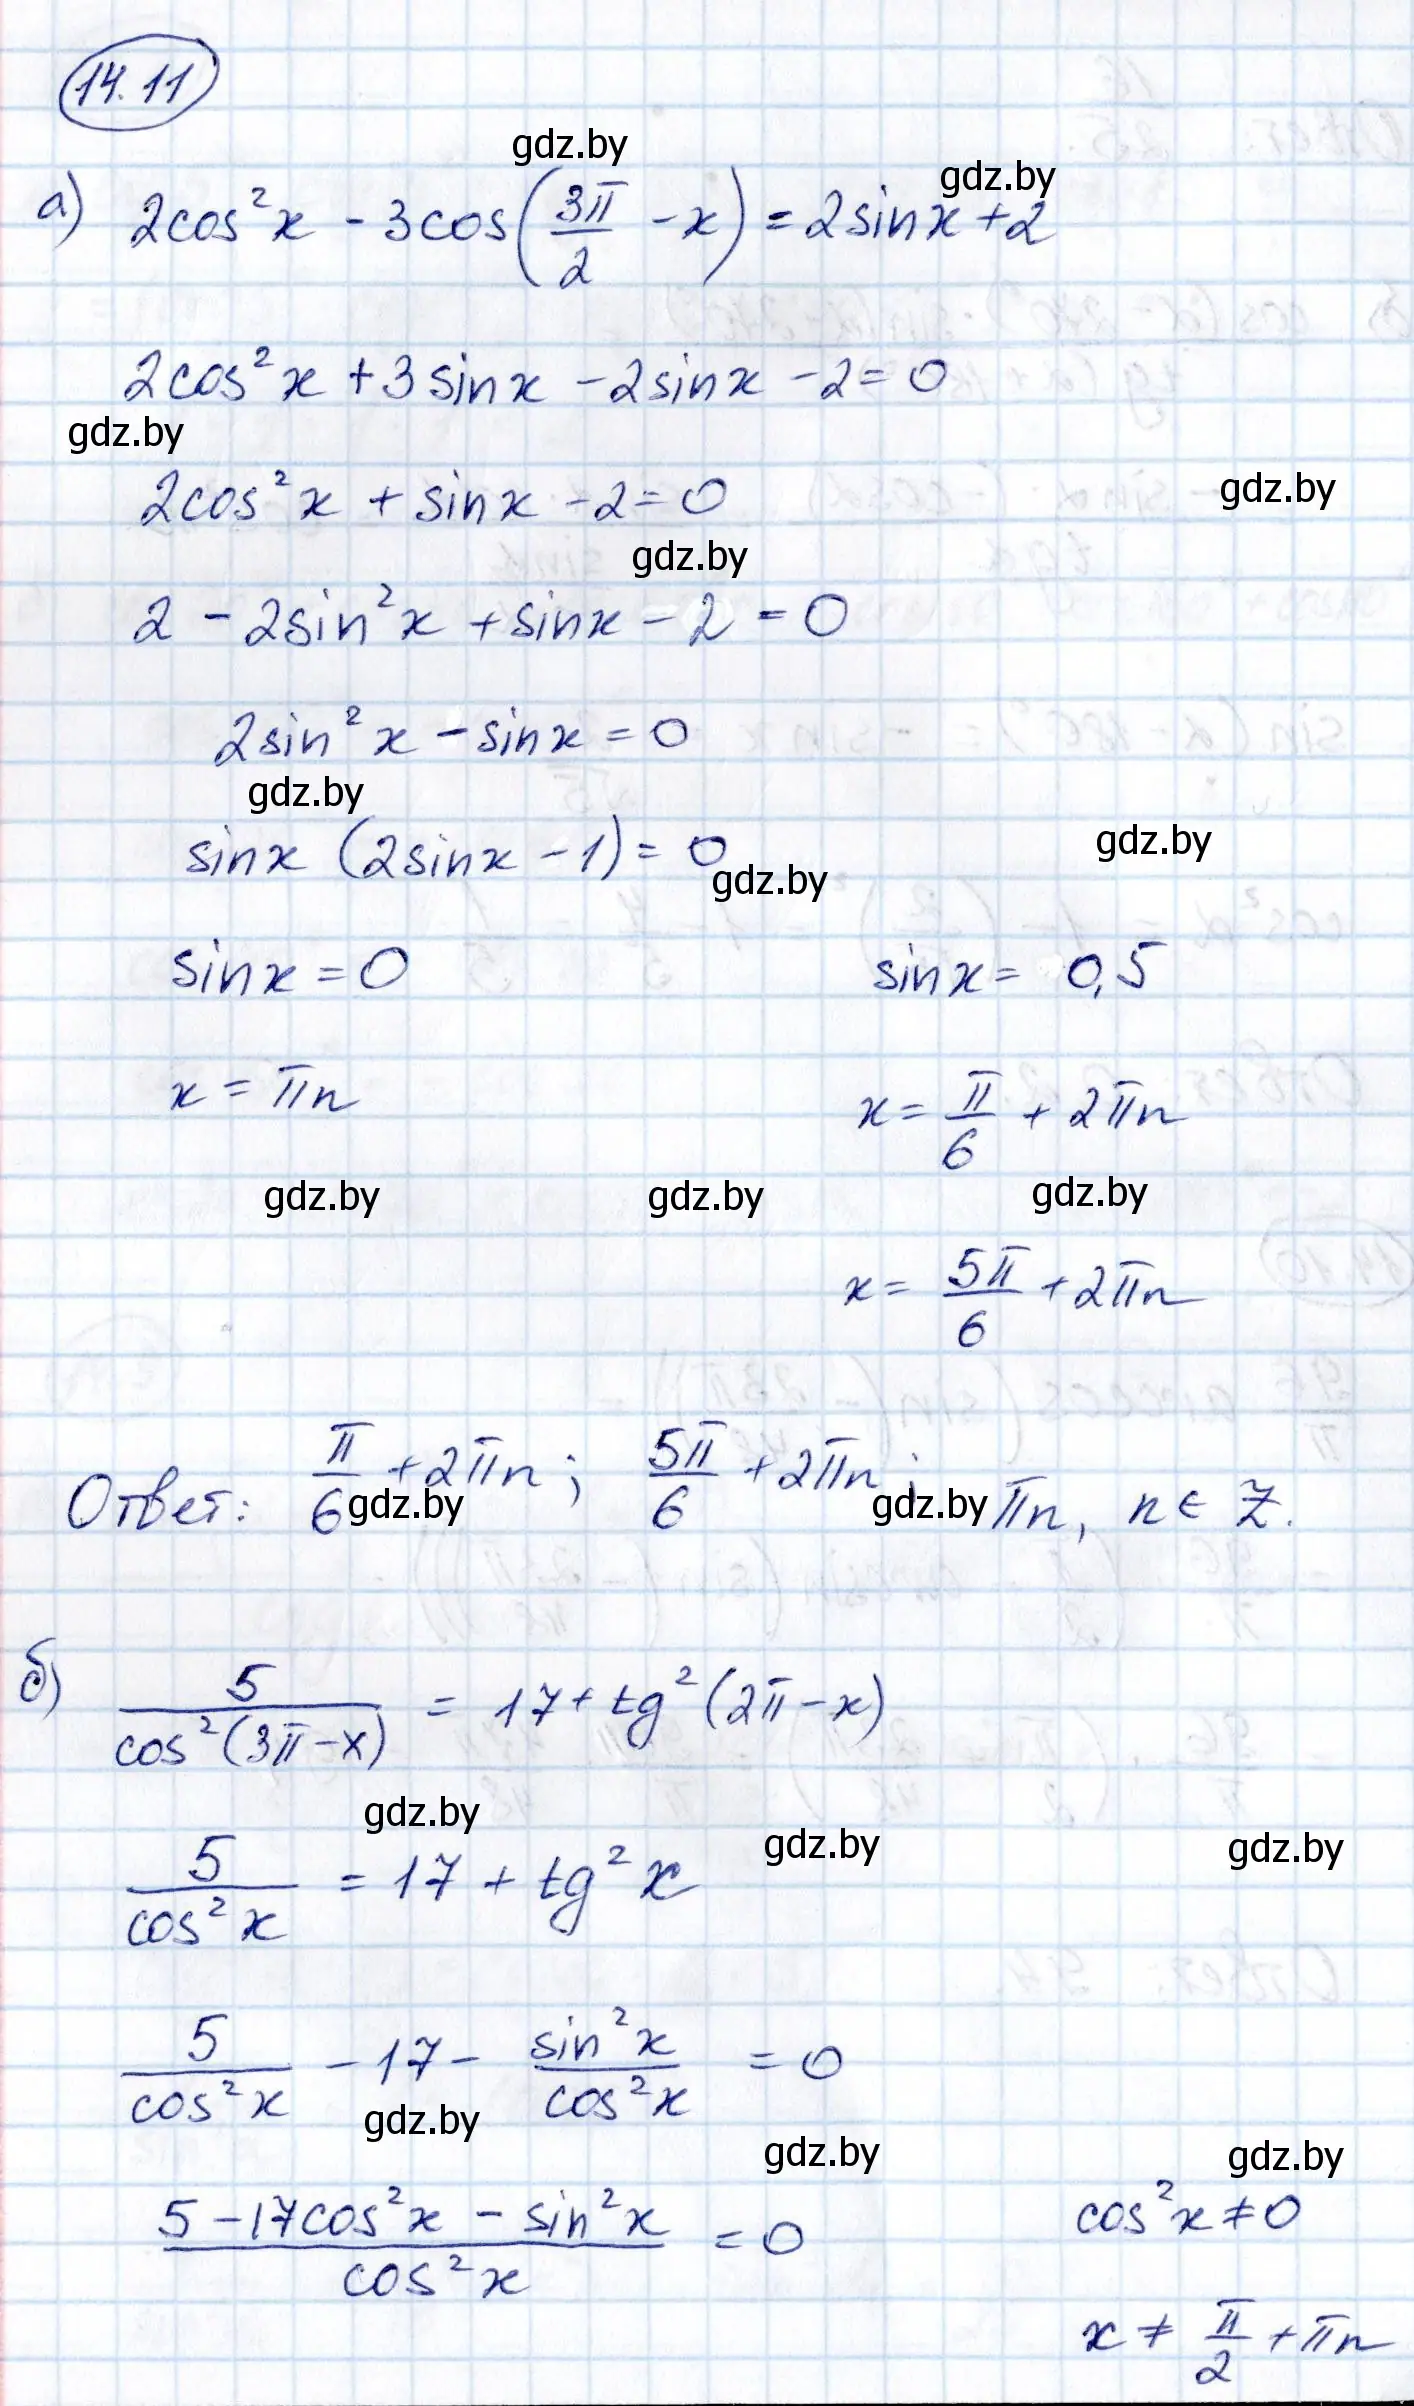 14.11
gdz.by
gdz.by
а) 2cos²x - 3cos(3π/2 - x) = 2sinx + 2
2cos²x + 3sinx - 2sinx - 2 = 0
gdz.by
gdz.by
2cos²x + sinx - 2 = 0
gdz.by
2 - 2sin²x + sinx - 2 = 0
2sin²x - sinx = 0
gdz.by
gdz.by
sinx (2sinx - 1) = 0
gdz.by
sinx = 0 sinx = 0,5
x = πn x = π/6 + 2πn
gdz.by gdz.by gdz.by
x = 5π/6 + 2πn
Ответ: π/6 + 2πn; 5π/6 + 2πn; πn, n ∈ Z.
gdz.by gdz.by
б) 5/cos²(3π - x) = 17 + tg²(2π - x)
gdz.by gdz.by gdz.by
5/cos²x = 17 + tg²x
5/cos²x - 17 - sin²x/cos²x = 0
gdz.by gdz.by gdz.by
(5 - 17cos²x - sin²x)/cos²x = 0 cos²x ≠ 0
x ≠ π/2 + πn